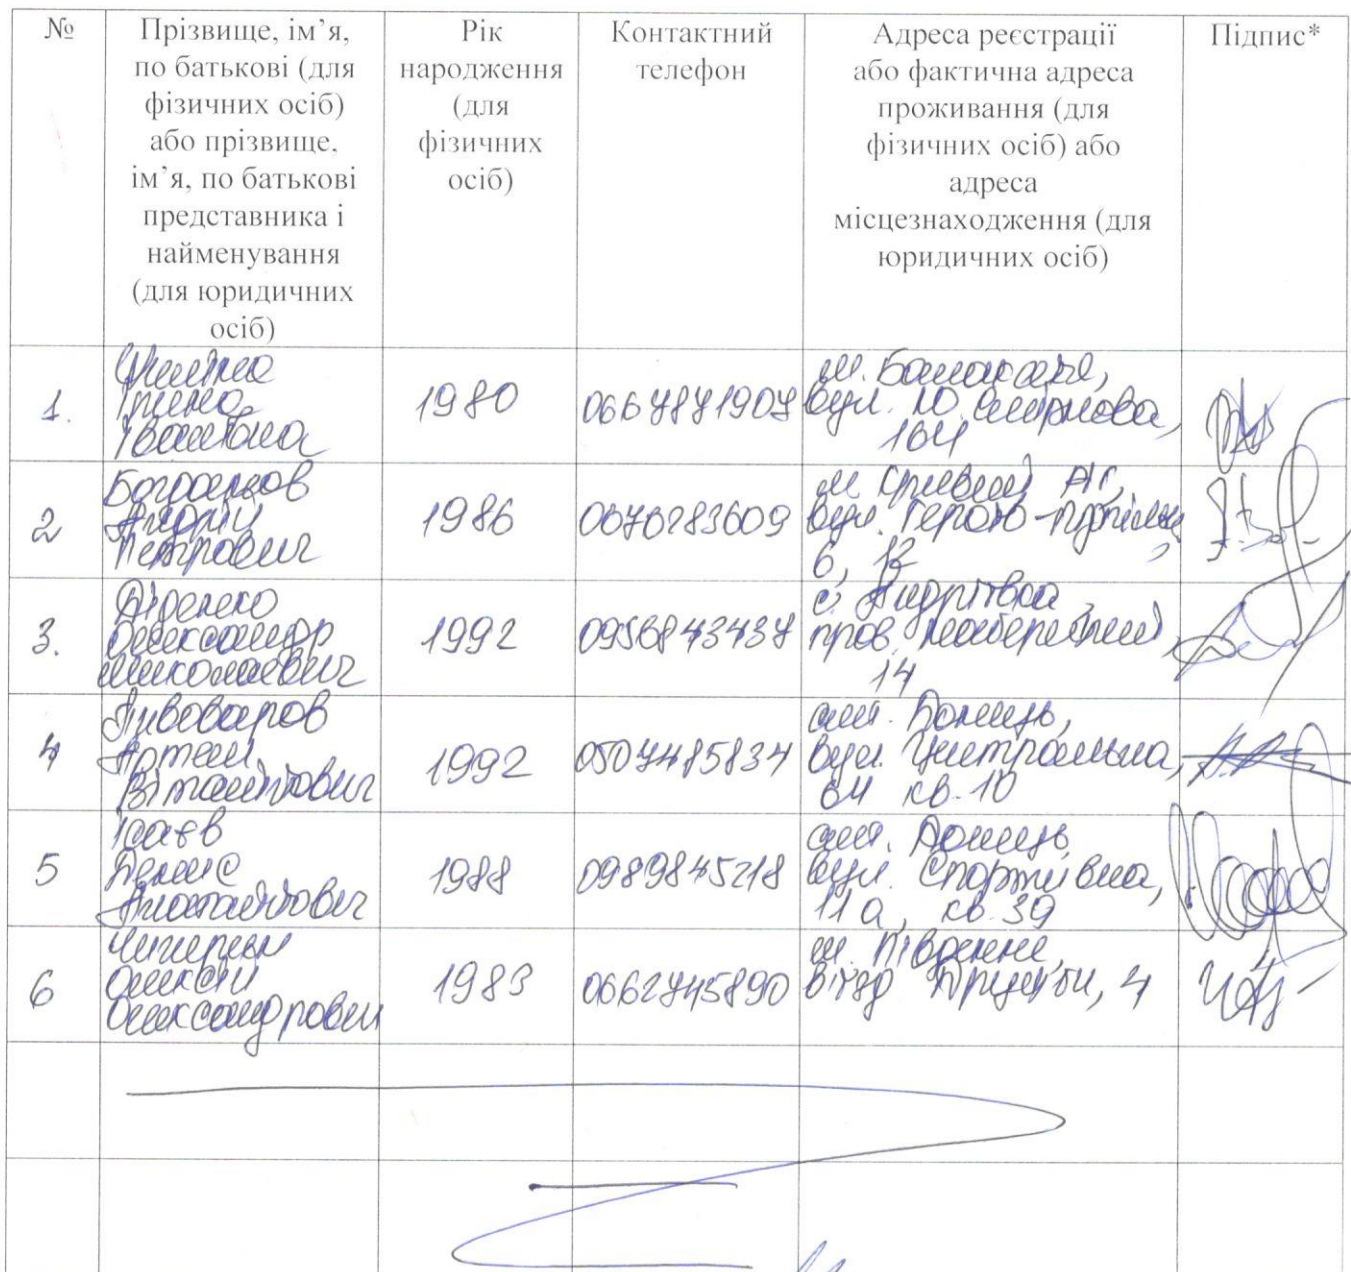 №
Прізвище, ім’я,
по батькові (для
фізичних осіб)
або прізвище,
ім’я, по батькові
представника і
найменування
(для юридичних
осіб)
Рік
народження
(для
фізичних
осіб)
Контактний
телефон
Адреса реєстрації
або фактична адреса
проживання (для
фізичних осіб) або
адреса
місцезнаходження (для
юридичних осіб)
Підпис*
1.
Ірина
Іванівна
1980
0667871907
м. Балаклія,
вул. Ю. Смирнова,
164
2
Богданов
Андрій
Петрович
1986
0676283609
м. Кривий Ріг,
вул. Героїв
6, 12
3.
Діденко
Олександр
Миколаєвич
1992
0956843437
с. Андріївка,
пров. Набережний,
14
4
Пивоваров
Артем
Віталійович
1992
0507485834
смт. Донець,
вул. Центральна,
64 кв. 10
5
Ісаєв
Денис
Анатолійович
1988
0989845218
смт. Донець
вул. Спортивна,
11а, кв. 39
6
Чигерин
Олексій
Олександрович
1983
0662745890
м. Південне,
в'їзд Дружби, 4